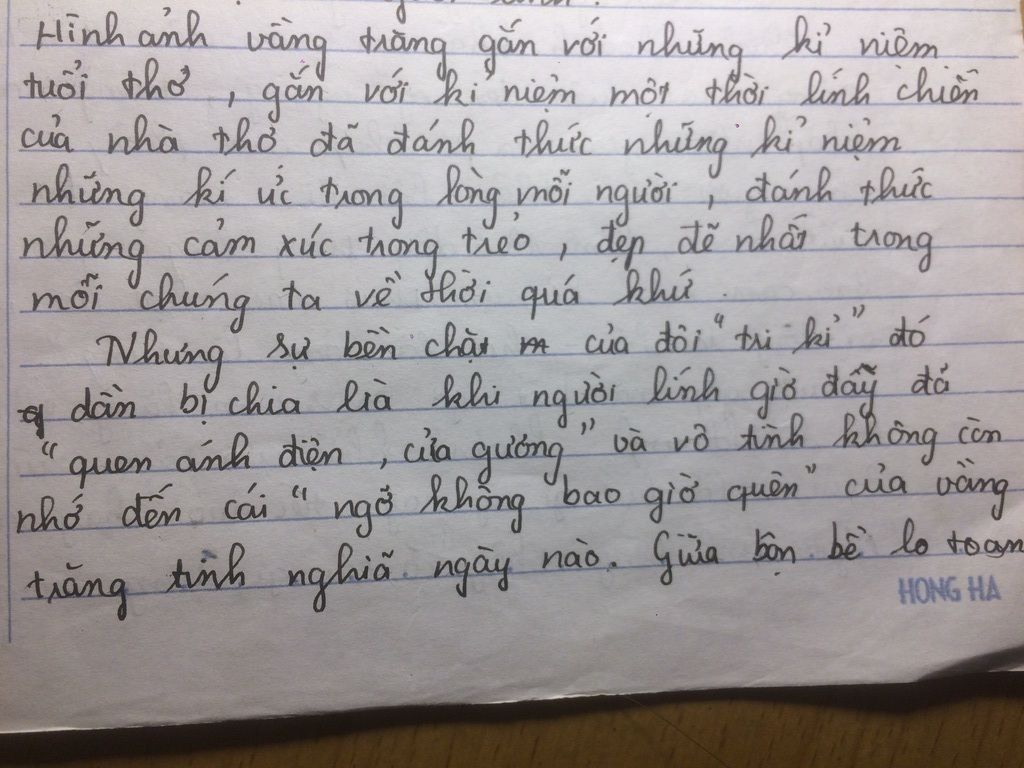 Hình ảnh vầng trăng gắn với những kỉ niệm
tuổi thơ, gắn với kỉ niệm một thời lính chiến
của nhà thơ đã đánh thức những kỉ niệm
những kí ức trong lòng mỗi người, đánh thức
những cảm xúc trong trẻo, đẹp đẽ nhất trong
mỗi chúng ta về thời quá khứ.
Nhưng sự bền chặt của đôi "tri kỉ" đó
dần bị chia lìa khi người lính giờ đây đã
"quen ánh điện, cửa gương" và vô tình không còn
nhớ đến cái "ngỡ không bao giờ quên" của vầng
trăng tình nghĩa ngày nào. Giữa bộn bề lo toan
HONG HA